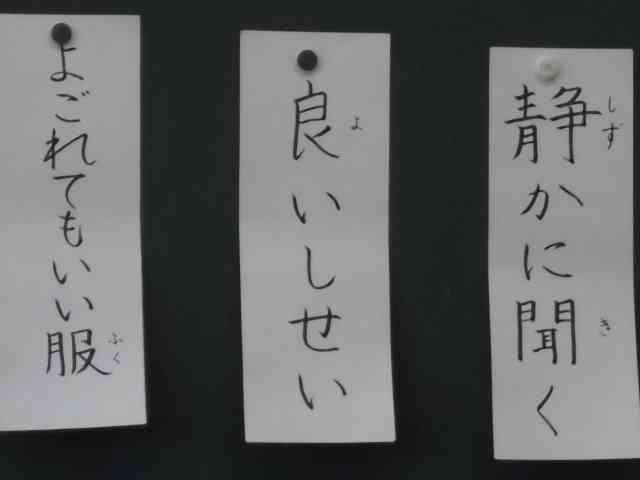 静かに聞く
しず
き
良いしせい
よ
よごれてもいい服
ふく